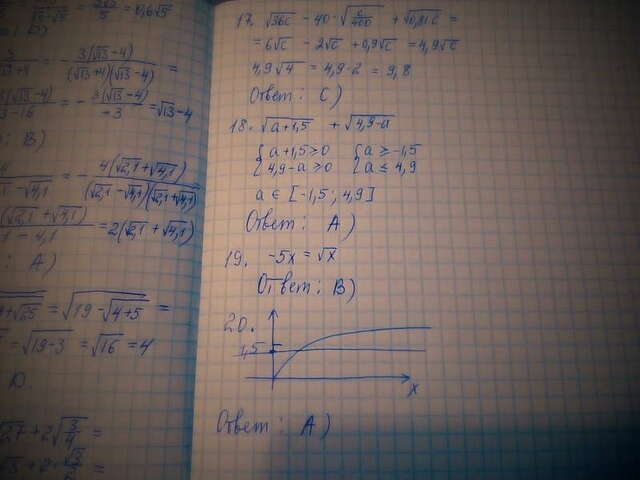 = 0,6√5
- 3(√13-4) / (√13+4)(√13-4) =
- 3(√13-4) / -3 = √13-4
: B)
= - 4(√2,1+√4,1) / (√2,1-√4,1)(√2,1+√4,1)
(√2,1+√4,1) / -4,1 = 2(√2,1+√4,1)
: A)
+√25 = √19-√4+5 =
= √19-3 = √16 = 4
D.
√27 + 2√3/4 =
17. √36c - 40·√c/400 + √0,81c =
= 6√c - 2√c + 0,9√c = 4,9√c
4,9√4 = 4,9·2 = 9,8
Ответ: C)
18. √a+1,5 + √4,9-a
{ a+1,5≥0 { a≥-1,5
{ 4,9-a≥0 { a≤4,9
a ∈ [-1,5; 4,9]
Ответ: A)
19. -5x = √x
Ответ: B)
20.
1,5
x
Ответ: A)